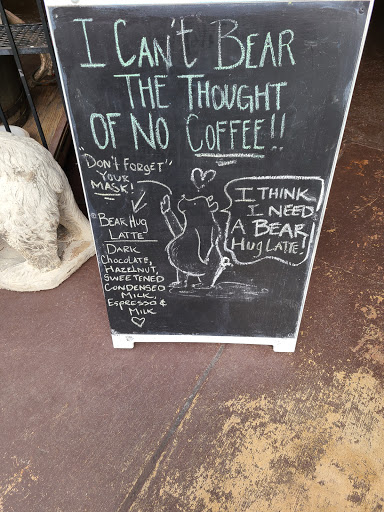 I Can't Bear
The Thought
of No Coffee!!
"Don't Forget"
Your
Mask!
Bear Hug
Latte
Dark
Chocolate,
Hazelnut,
Sweetened
Condensed
Milk,
Espresso &
Milk
I Think
I Need
A Bear
Hug Latte!